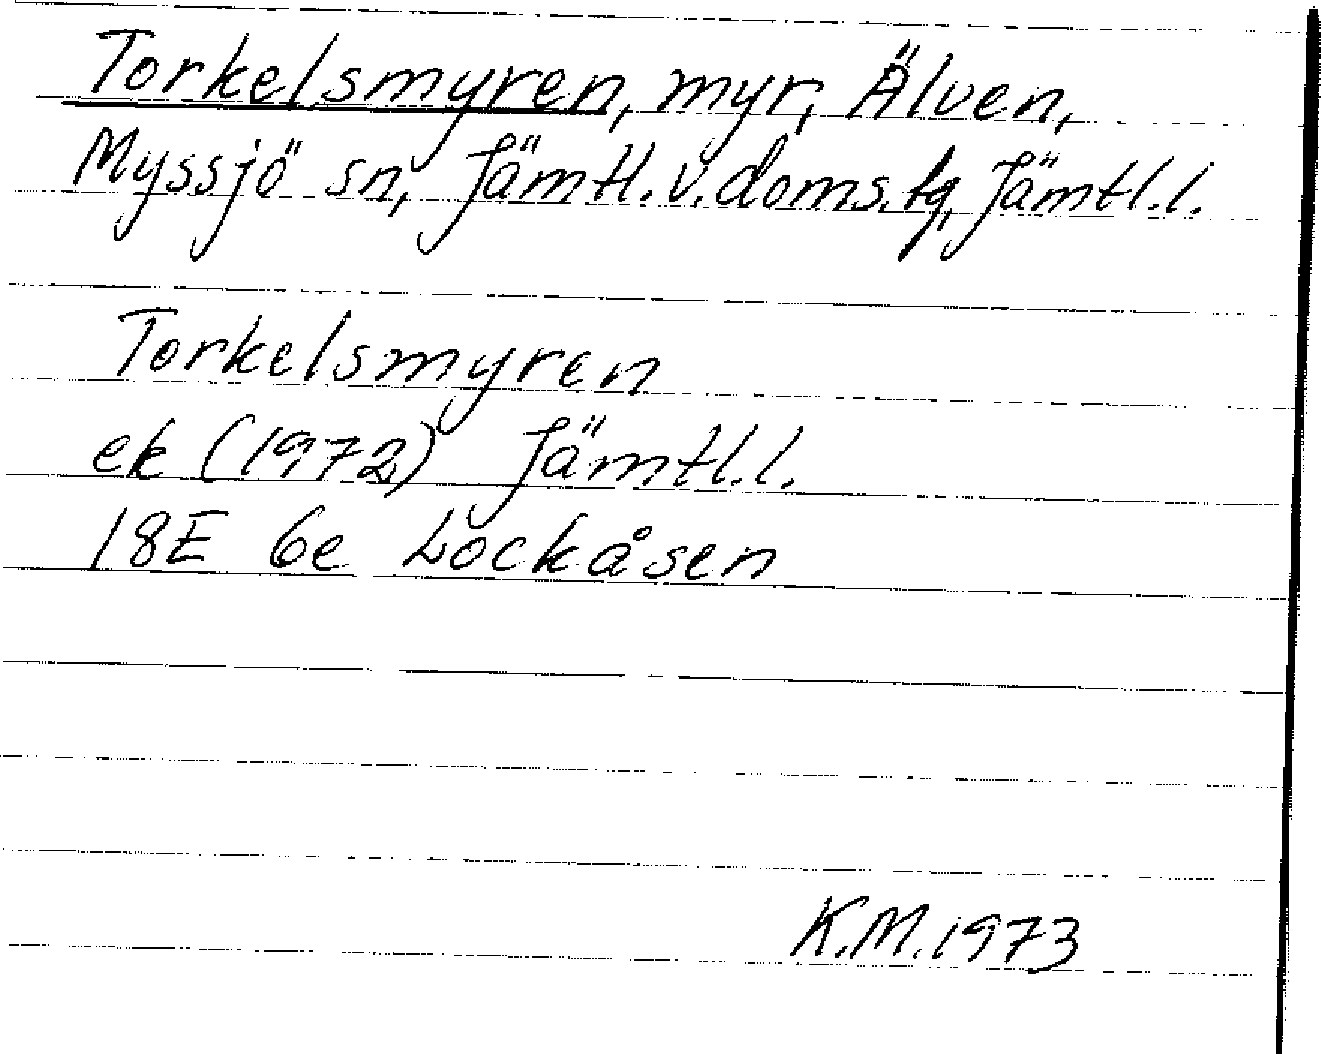 Torkelsmyren, myr, Älven,
Myssjö sn, Jämtl. v. doms.tg, Jämtl.l.
Torkelsmyren
ek (1972) Jämtl.l.
18E 6e Lockåsen
K.M. 1973